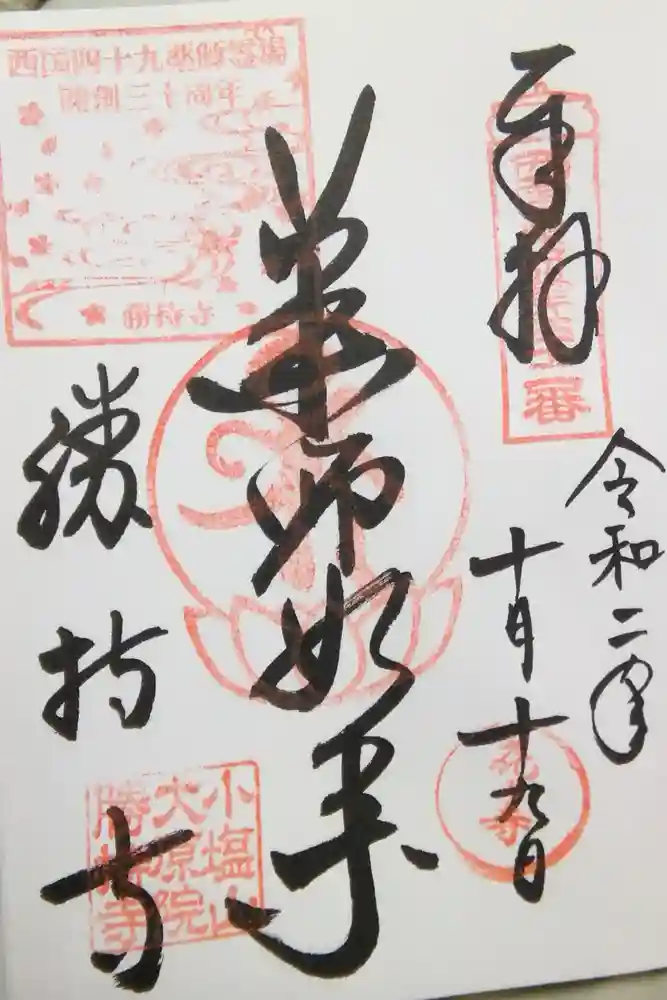 奉拝
令和二年
十月十九日
薬師如来
勝持寺
西国四十九薬師霊場
開創三十周年
勝持寺
小塩山
大原院
勝持寺
花寺